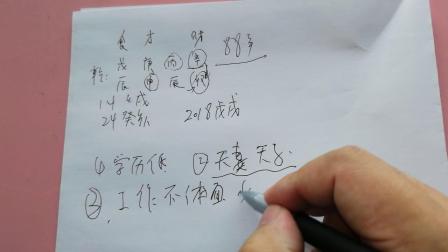 食 才
戊 庚 丙 辛 88年
乾: 辰 申 辰 卯
14 壬戌
24 癸亥 2018戊戌
① 学历低 ② 无妻 无子.
③ 工作不体面